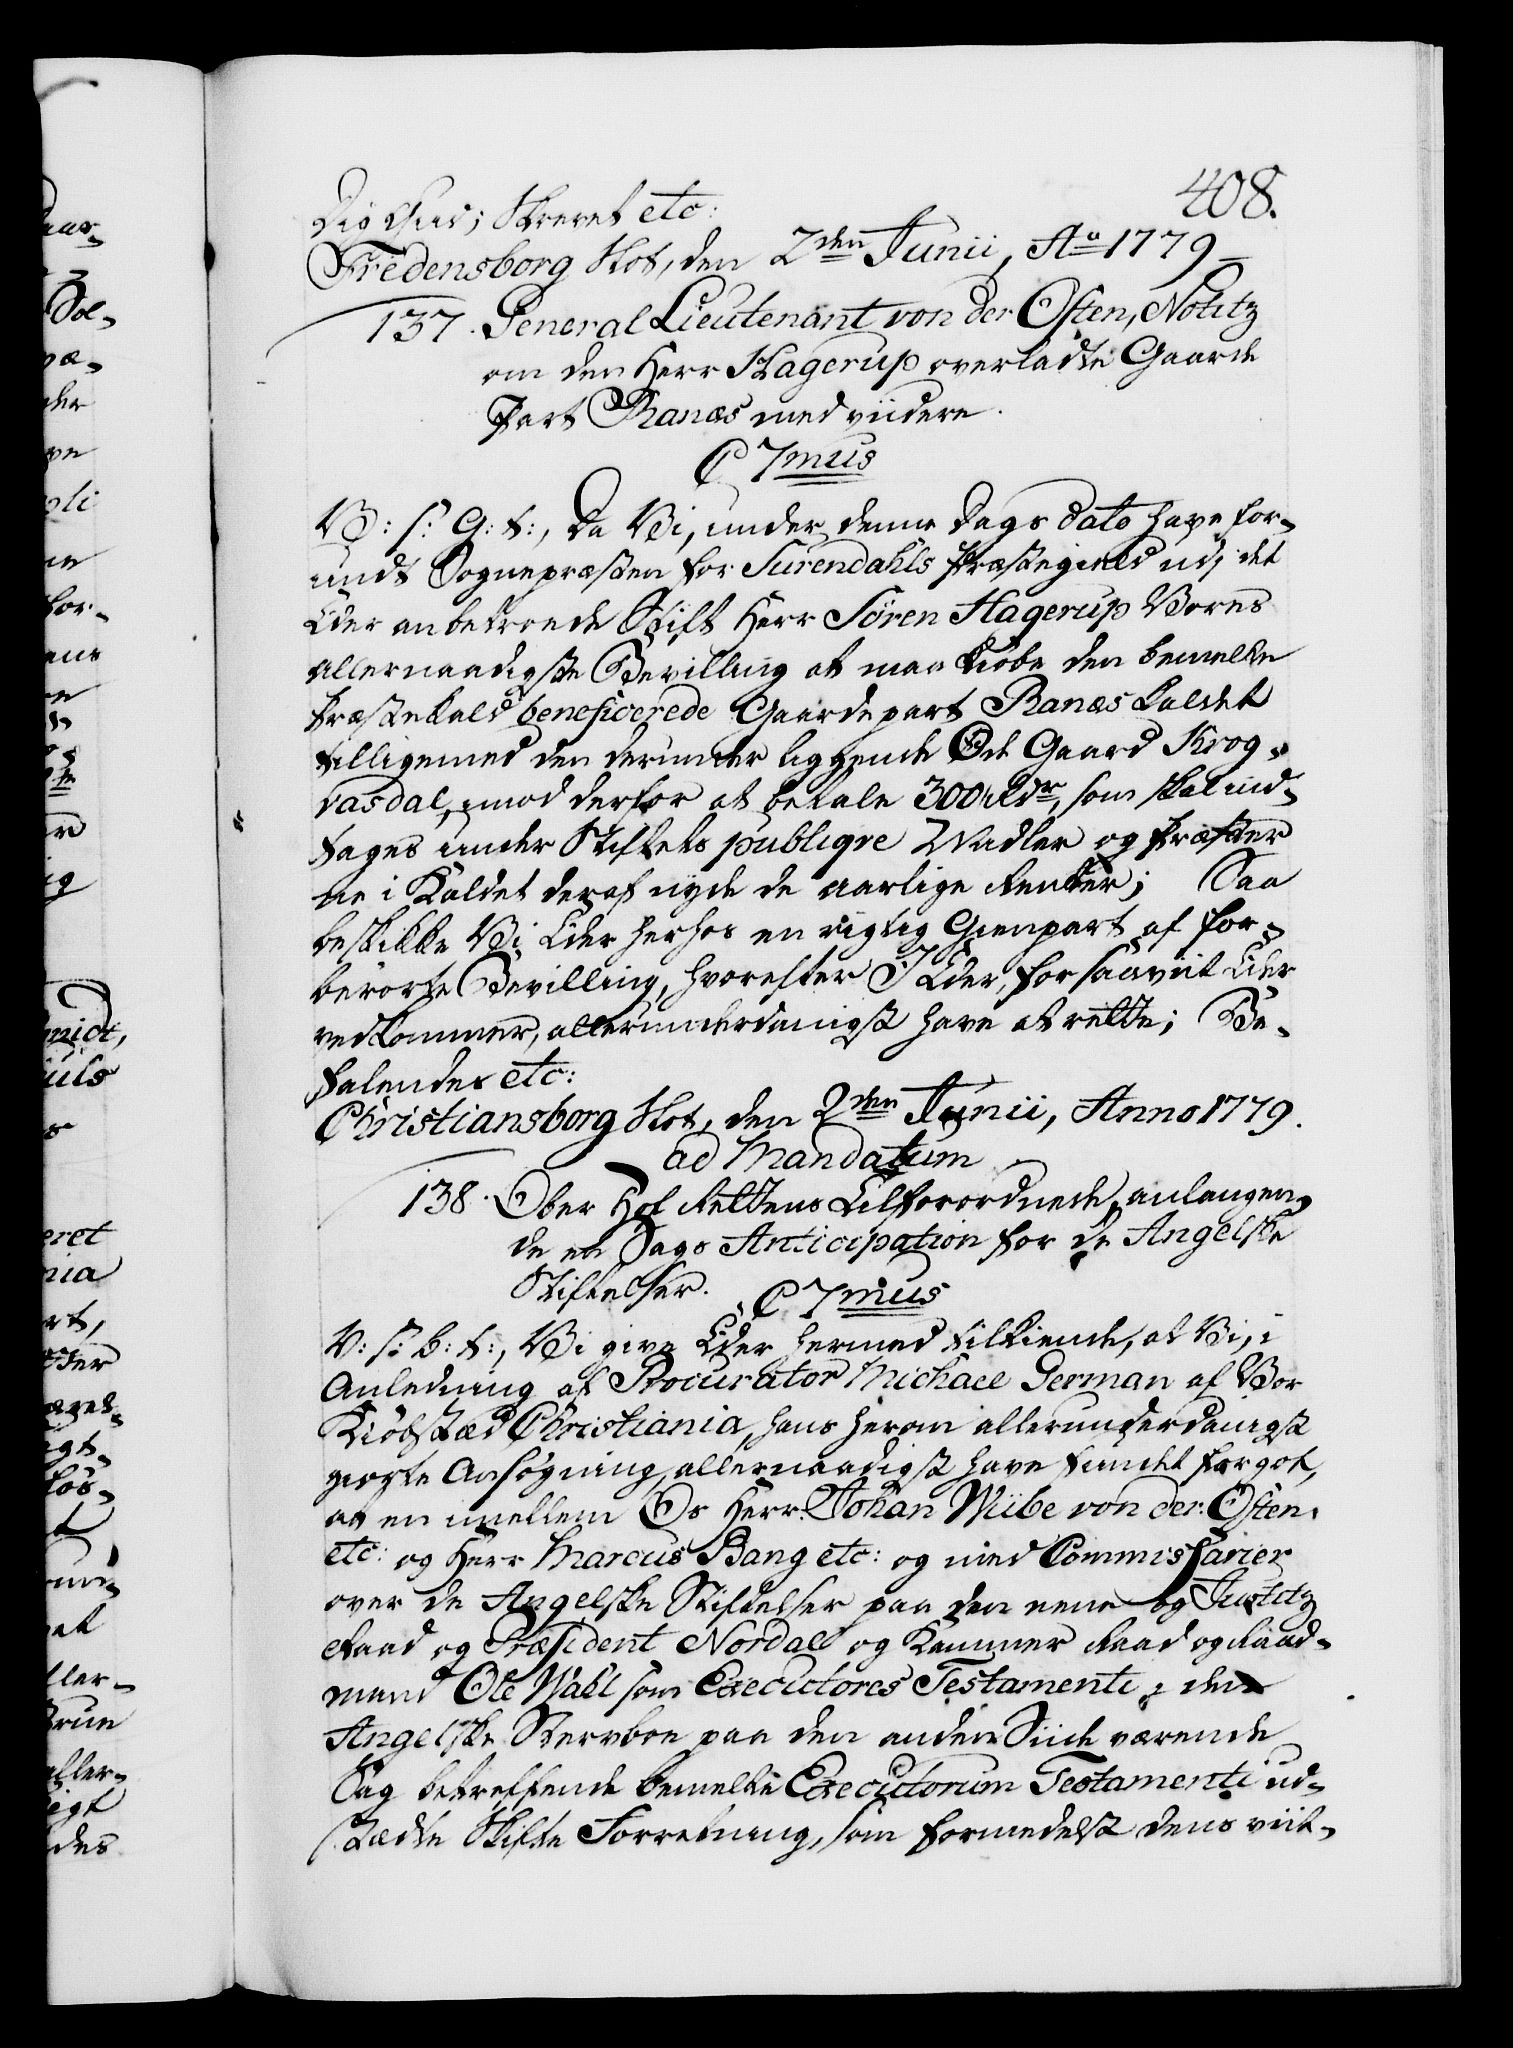 408.
Dig Gud; Skrevet etc:
Fredensborg Slot, den 2den Junii, Ao 1779
137. General Lieutenant von der Osten, Notitz
om den Herr Hagerup overladte Gaarde
Part Ranæs med viidere.
C 7mus
V: S: G: T:, Da Vi, under denne Dags dato have for-
undt Sognepræsten for Surendahls Præstegield udi det
Eder anbetroede Stift Herr Sören Hagerup Vores
allernaadigste Bevilling at maa kiøbe den bemelte
Præstekald beneficerede Gaardepart Ranæs kaldet
tilligemed den derunder liggende Øde Gaard Krog-
vasdal, imod derfor at betale 300 Rdr, som skal ind-
tages under Stiftets publiqve Midler og Præster
ne i Kaldet deraf nyde de aarlige Renter; Saa
beskikke Vi Eder herhos en rigtig Gienpart af for-
berørte Bevilling, hvorefter I Eder, for saaviit Eder
vedkommer, allerunderdanigst have at rette; Be-
falendes etc:
Christiansborg Slot, den 2den Junii, Anno 1779.
ad Mandatum
138. Ober Hof Rettens Tilforordnede, anlangen-
de en Sags Anticipation for de Angelske
Stiftelser. C 7mus
V: S: B: T:, Vi give Eder hermed tilkiende, at Vi, i
Anledning af Procurator Michael German af Vor
Kiøbstæd Christiania, hans herom allerunderdanigst
giorte Ansøgning, allernaadigst have fundet for got,
at en imellem Os Herr Johan Wiibe von der Osten
etc: og Herr Marcus Bang etc: og med Commissarier
over de Angelske Stiftelser paa den eene og Justitz
Raad og Præsident Nordal og Kammer Raad og Raad-
mand Ole Wahl som Executores Testamenti i den
Angelske Stervboe paa den anden Siide værende
Sag betreffende bemelte Executorum Testamenti ud-
stædte Skifte Forretning, som formedelst dens viit-